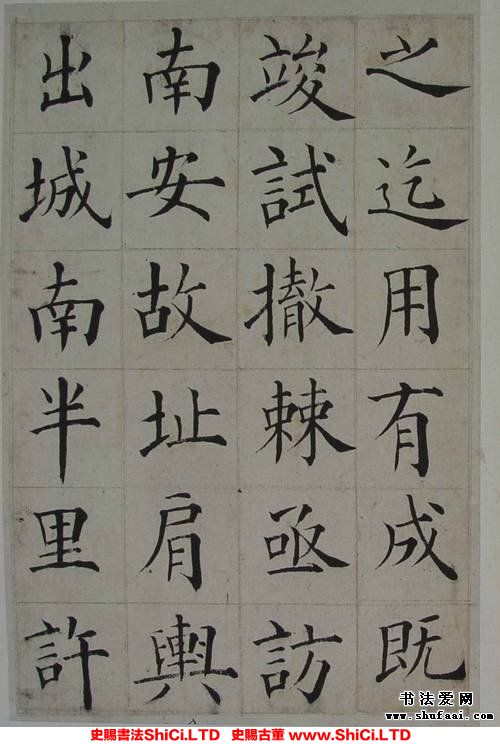 之迄用有成既
竣試撤棘亟訪
南安故址肩輿
出城南半里許
书法爱网
www.shufaai.com
史賜書法ShiCi.LTD 史賜古董 www.ShiCi.LTD